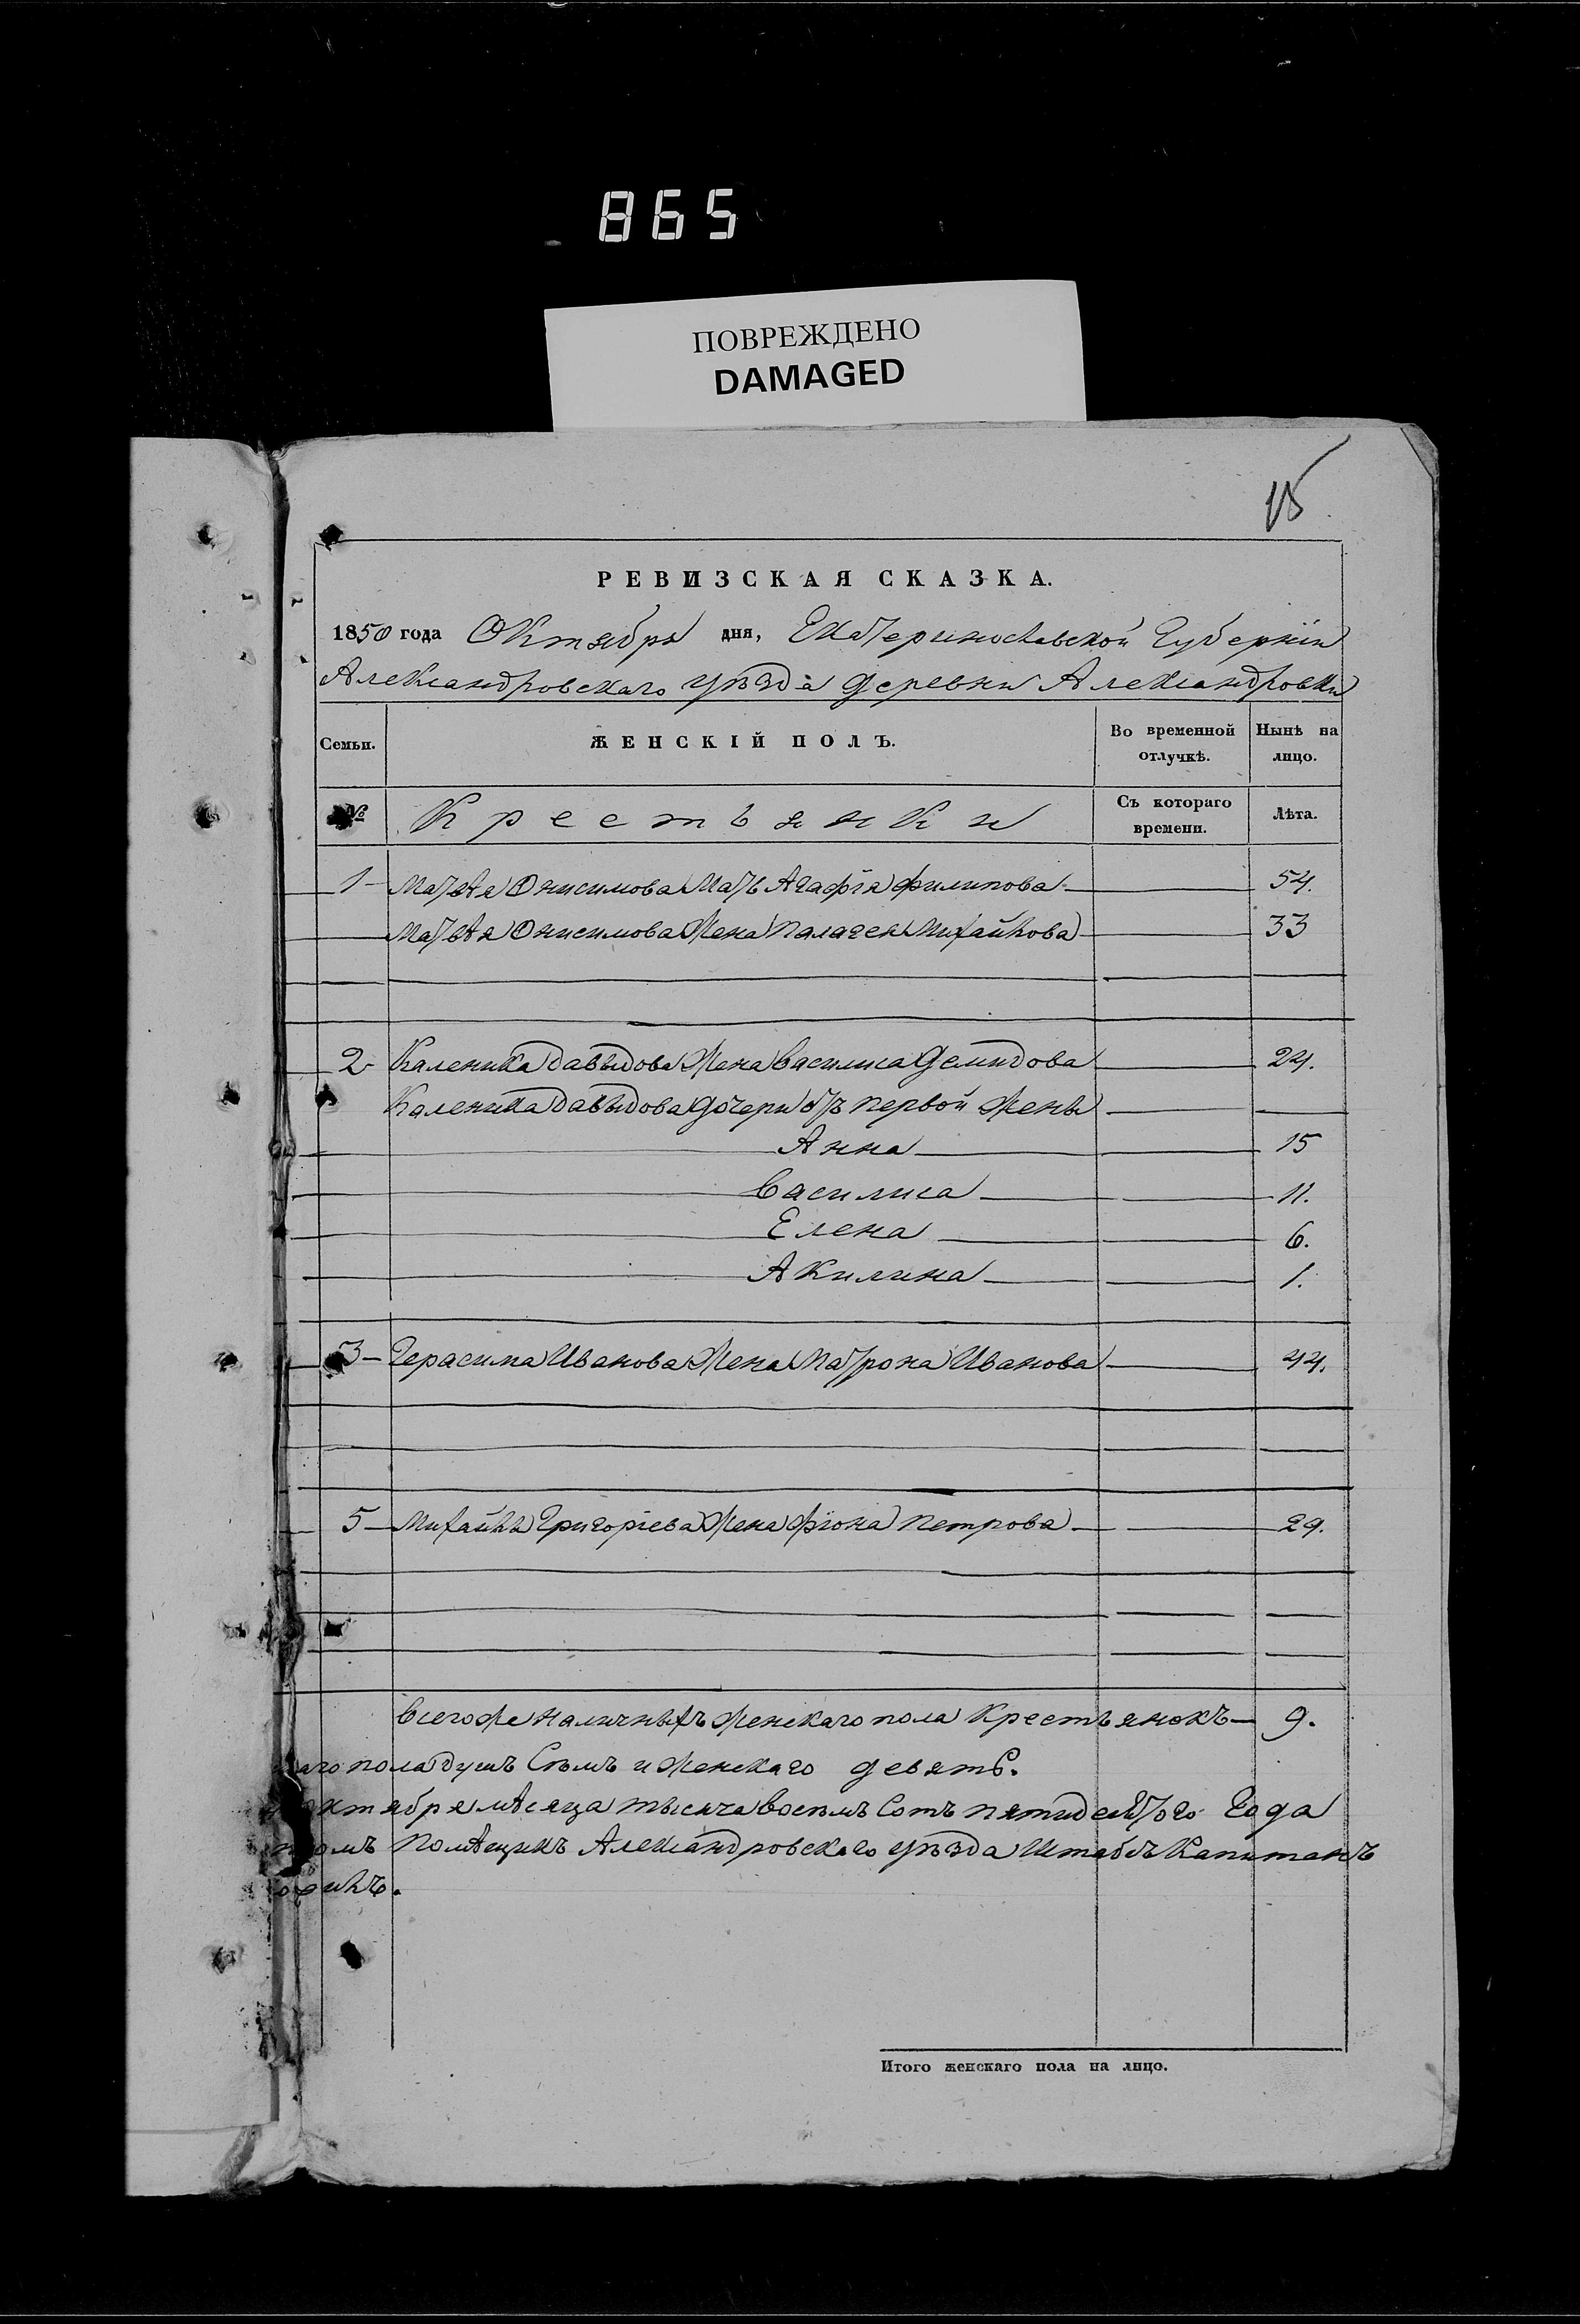 865
ПОВРЕЖДЕНО
DAMAGED
15
РЕВИЗСКАЯ СКАЗКА.
1850 года Октября дня, Екатеринославской Губерніи
Александровскаго уѣзда деревни Александровки
Семьи. ЖЕНСКІЙ ПОЛЪ. Во временной отлучкѣ. Нынѣ на лицо.
№ Крестьянки Съ котораго времени. Лѣта.
1 Матвѣя Онисимова Мать Агафія Филипова 54.
Матвѣя Онисимова Жена Палагея Михайлова 33
2 Каленика Давыдова Жена Василиса Демидова 24.
Каленика Давыдова дочери отъ первой Жены
Анна 15
Василиса 11.
Елена 6.
Акилина 1.
3 Герасима Иванова Жена Матрона Иванова 44.
5 Михайлы Григоріева Жена Фіона Петрова 29.
Всего же наличныхъ Женскаго пола Крестьянокъ 9.
пола душъ Сѣмъ и Женскаго девять.
Октября мѣсяца тысяча восѣмъ Сотъ пятидесятого Года
Помѣщикъ Александровскаго уѣзда Штабсъ Капитанъ
Итого женскаго пола на лицо.